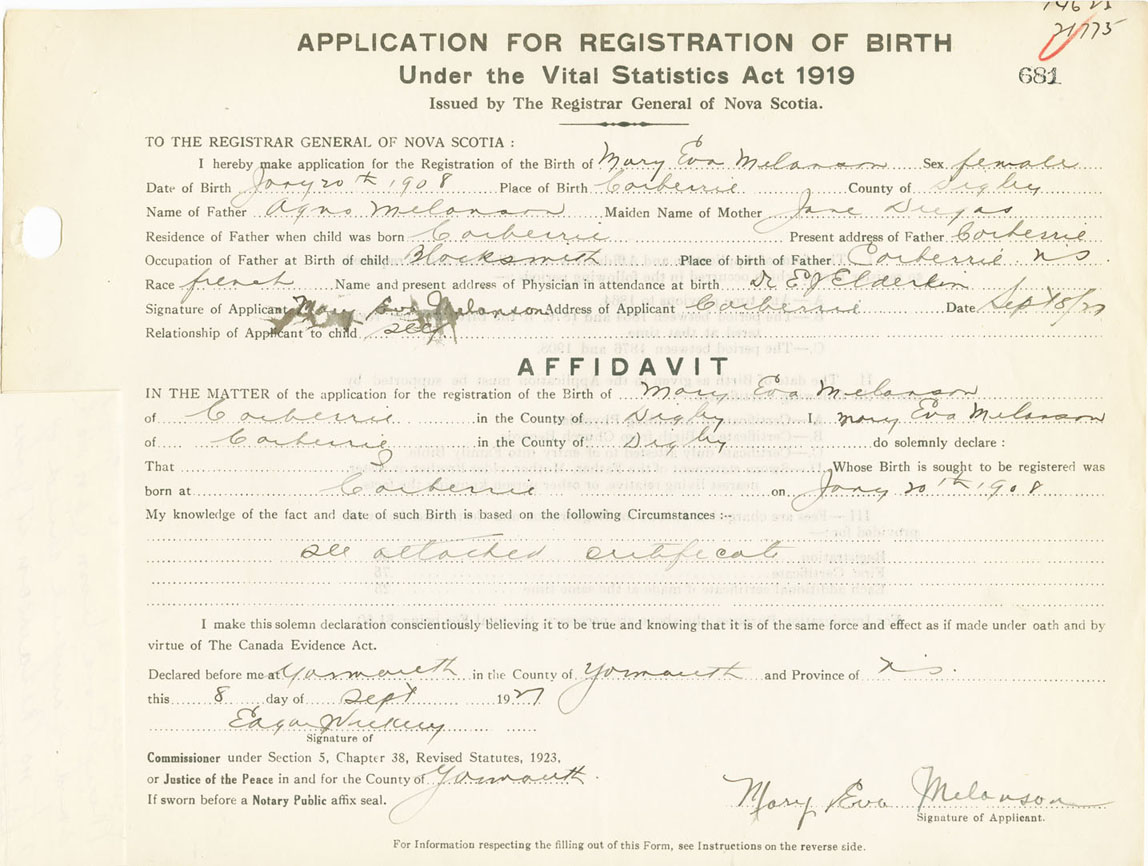 21775
681
APPLICATION FOR REGISTRATION OF BIRTH
Under the Vital Statistics Act 1919
Issued by The Registrar General of Nova Scotia.
TO THE REGISTRAR GENERAL OF NOVA SCOTIA :
I hereby make application for the Registration of the Birth of Mary Eva Melanson Sex female
Date of Birth Jany 20th 1908 Place of Birth Corberrie County of Digby
Name of Father Melanson Maiden Name of Mother Jane
Residence of Father when child was born Corberrie Present address of Father Corberrie
Occupation of Father at Birth of child Blacksmith Place of birth of Father Corberrie N S
Race french Name and present address of Physician in attendance at birth Dr E J Elderkin
Signature of Applicant Mary Eva Melanson Address of Applicant Corberrie Date Sept 8/27
Relationship of Applicant to child self
AFFIDAVIT
IN THE MATTER of the application for the registration of the Birth of Mary Eva Melanson
of Corberrie in the County of Digby I, Mary Eva Melanson
of Corberrie in the County of Digby do solemnly declare :
That Whose Birth is sought to be registered was
born at Corberrie on Jany 20th 1908
My knowledge of the fact and date of such Birth is based on the following Circumstances :--
see attached certificate
I make this solemn declaration conscientiously believing it to be true and knowing that it is of the same force and effect as if made under oath and by
virtue of The Canada Evidence Act.
Declared before me at Yarmouth in the County of Yarmouth and Province of N S.
this 8 day of Sept 1927
Edgar
Signature of
Commissioner under Section 5, Chapter 38, Revised Statutes, 1923,
or Justice of the Peace in and for the County of Yarmouth.
If sworn before a Notary Public affix seal.
Mary Eva Melanson
Signature of Applicant.
For Information respecting the filling out of this Form, see Instructions on the reverse side.